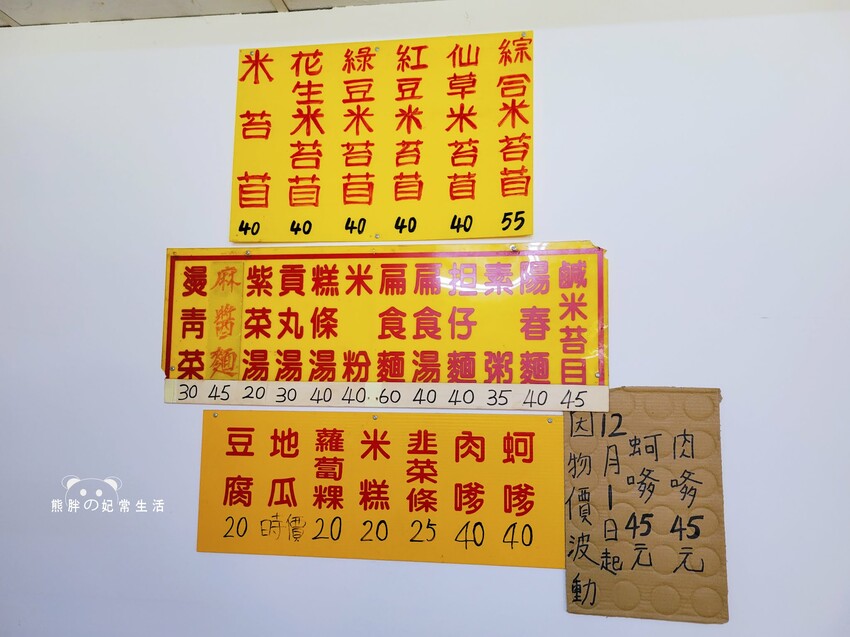 綜合米苔苜 55
仙草米苔苜 40
紅豆米苔苜 40
綠豆米苔苜 40
花生米苔苜 40
米苔苜 40
鹹米苔目 45
陽春麵 40
素粥 35
担仔麵 40
扁食湯 40
扁食麵 60
米粉 40
糕條湯 40
貢丸湯 30
紫菜湯 20
麻醬麵 45
燙青菜 30
蚵嗲 40
肉嗲 40
韭菜條 25
米糕 20
蘿蔔粿 20
地瓜 時價
豆腐 20
肉嗲45元
蚵嗲45元
12月1日起
因物價波動
熊胖の妃常生活